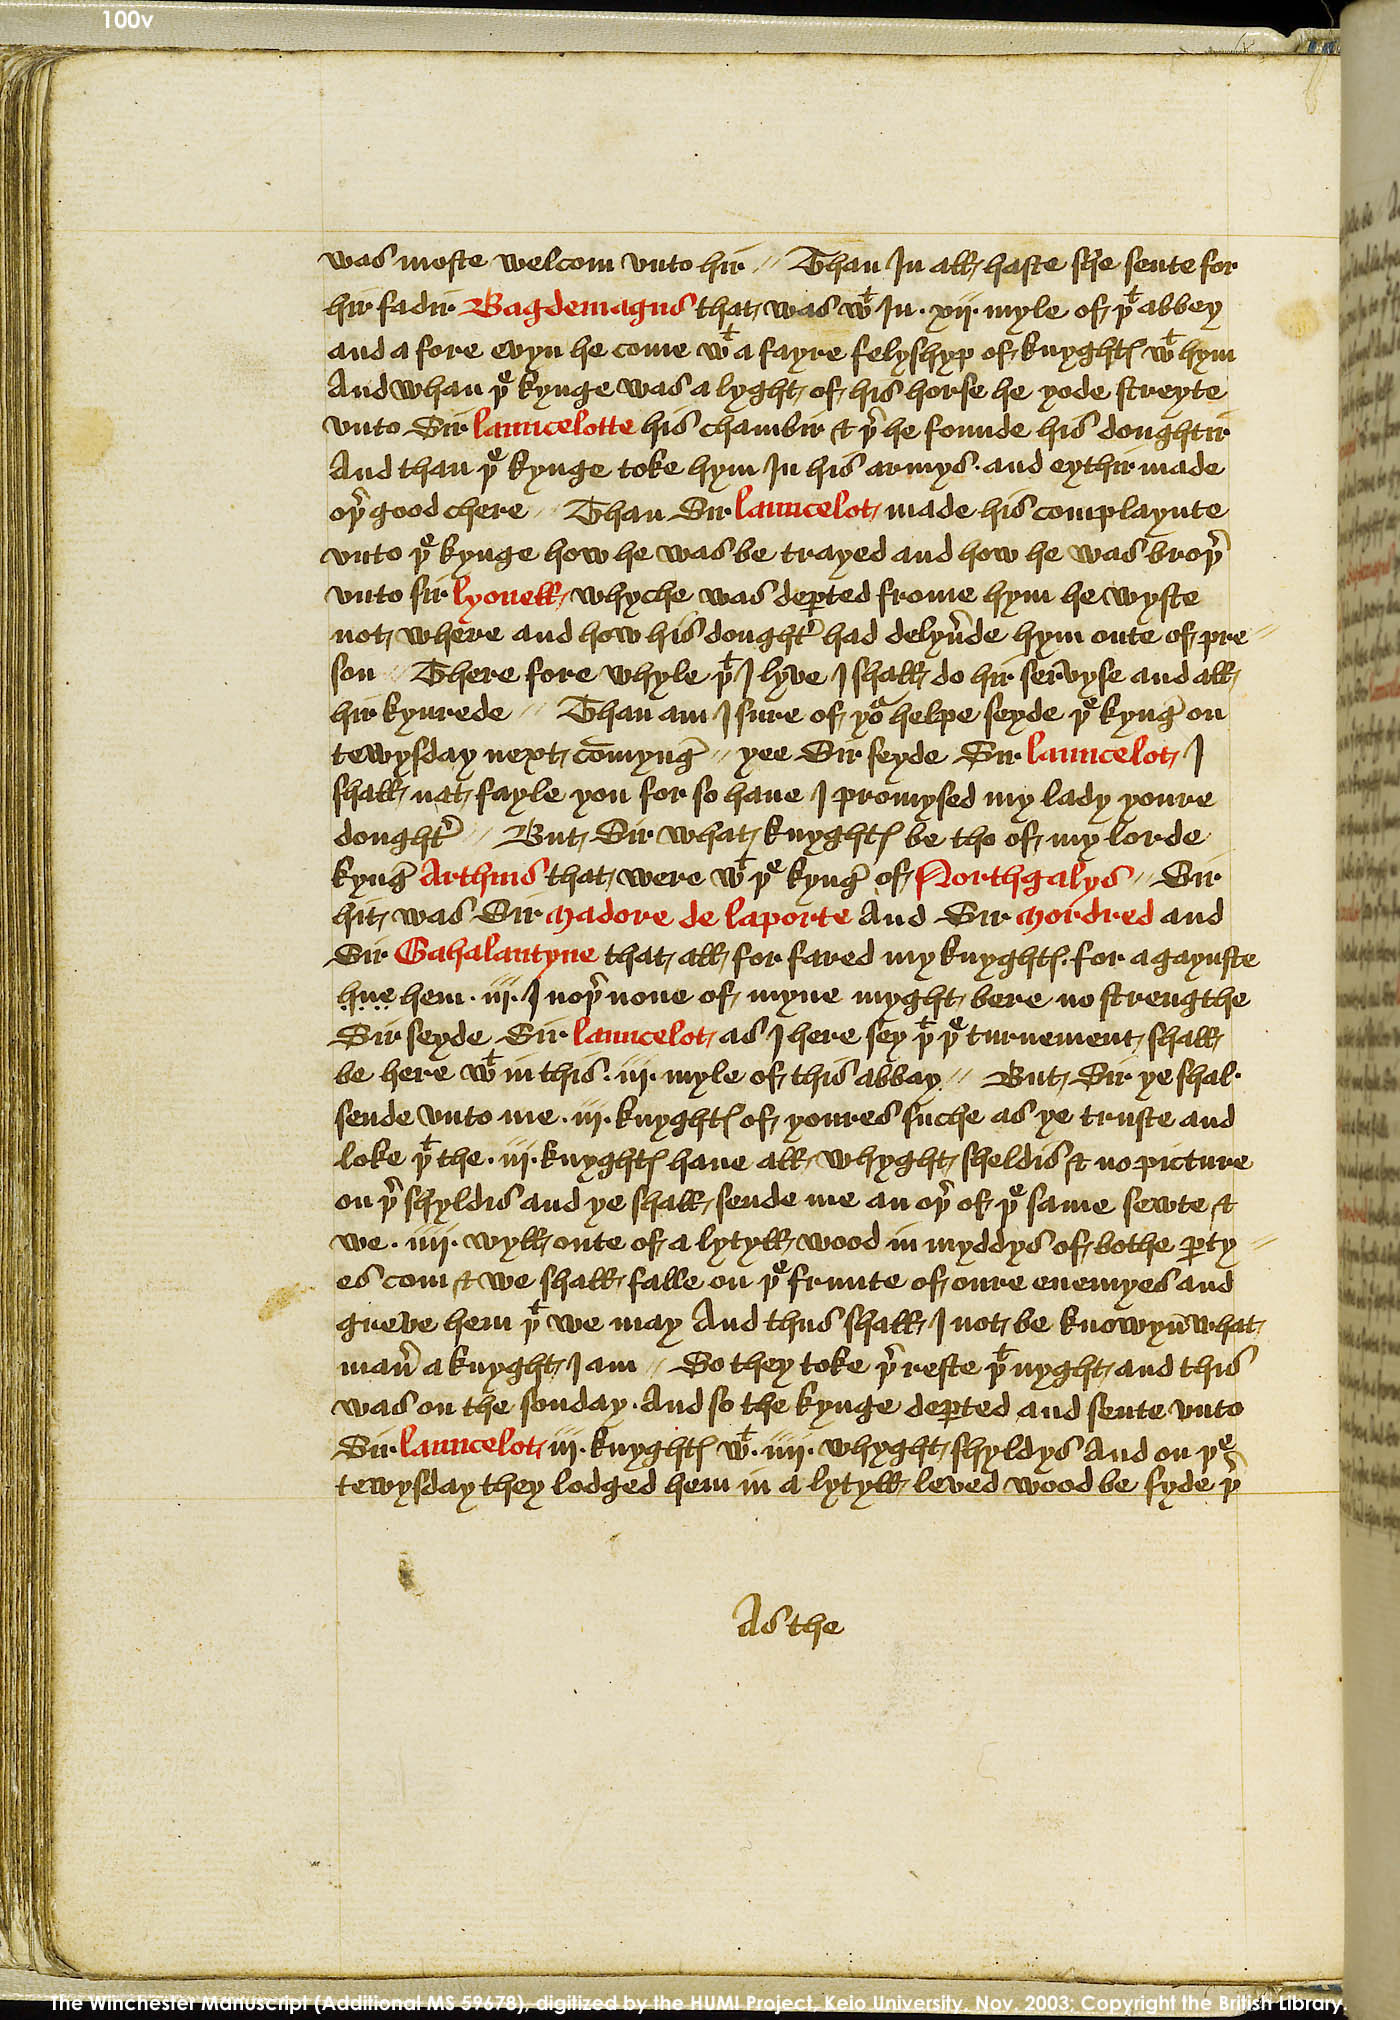 100v
was moste welcom vnto hir // Than In all haste she sente for
hir fadir Bagdemagus that was wᵗ In · xij · myle of þᵗ abbey
and a fore evyn he come wᵗ a fayre felyshyp of knyghtꝭ wᵗ hym
And whan þᵉ kynge was a lyght of his horse he yode streyte
vnto Sir launcelotte his chambir & þ̉ he founde his doughtir
And than þᵉ kynge toke hym In his armys · and eythir made
oþ̉ good chere // Than Sir launcelot made his complaynte
vnto þᵉ kynge how he was be trayed and how he was broþ̉
vnto sir lyonell whyche was deꝑted frome hym he wyste
not where and how his dought̉ had delyv̉de hym oute of pre //
son // There fore whyle þᵗ I lyve I shall do hir servyse and all
hir kynrede // Than am I sure of yoᵘ helpe seyde þᵉ kyng̉ on
tewysday next comyng̉ // yee Sir seyde Sir launcelot I
shall nat fayle you for so haue I promysed my lady youre
dought̉ // But Sir what knyghtꝭ be tho of my lorde
kyng̉ Arthurs that were wᵗ þᵉ kyng̉ of Northgalys // Sir
hit was Sir Madore de laporte And Sir Mordred and
Sir Gahalantyne that all for fared my knyghtꝭ · for agaynste
hue hem · iij · I noþ̉ none of myne myght bere no strengthe
Sir seyde Sir launcelot as I here sey þᵗ þᵉ turnement shall
be here wᵗ in this · iij · myle of this abbay // But Sir ye shal ·
sende vnto me · iij · knyghtꝭ of youres suche as ye truste and
loke þᵗ the · iij · knyghtꝭ haue all whyght sheldis & no picture
on þ̉ shyldis and ye shall sende me an oþ̉ of þᵉ same sewte &
we · iiij · wyll oute of a lytyll wood in myddys of bothe ꝑty //
es com & we shall falle on þᵉ frunte of oure enemyes and
greve hem þᵗ we may And thus shall I not be knowyn what
man̉ a knyght I am // So they toke þ̉ reste þᵗ nyght and this
was on the sonday · And so the kynge deꝑted and sente vnto
Sir launcelot iij · knyghtꝭ wᵗ · iiij · whyght shyldys And on þᵉ
tewysday they lodged hem in a lytyll leved wood be syde þ̉
As the
The Winchester Manuscript (Additional MS 59678), digitized by the HUMI Project, Keio University, Nov. 2003; Copyright the British Library.